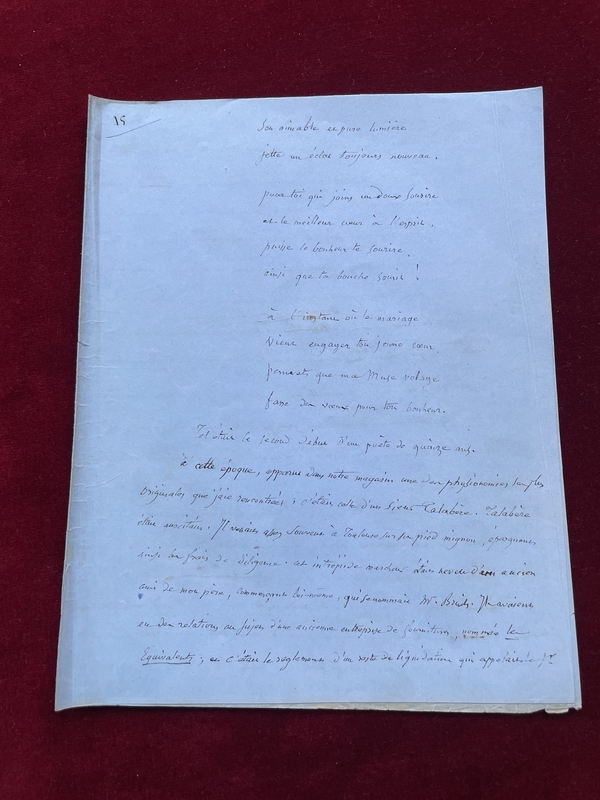 15
Son aimable et pure lumière
jette un éclat toujours nouveau.
pour toi qui joins un doux sourire
et le meilleur cœur à l'esprit,
puisse le bonheur te sourire,
ainsi que ta bouche sourit !
à l'instant où le mariage
Vient engager ton jeune cœur,
permets que ma Muse volage
fasse des vœux pour ton bonheur.
Tel était le second début d'un poète de quinze ans.
à cette époque, apparut dans notre magasin une des physionomies les plus
originales que j'aie rencontrées ; c'était celle d'un Sieur Talabère. Talabère
était auscitain. Il venait assez souvent à Toulouse sur pied mignon,
ainsi les frais de diligence. cet intrépide marcheur était neveu d'un ancien
ami de mon père, commerçant lui-même, qui se nommait M. Ils avaient
eu des relations au sujet d'une ancienne entreprise de fournitures, nommée les
Equivalents ; et c'était le règlement d'un reste de liquidation qui appelait le Sr